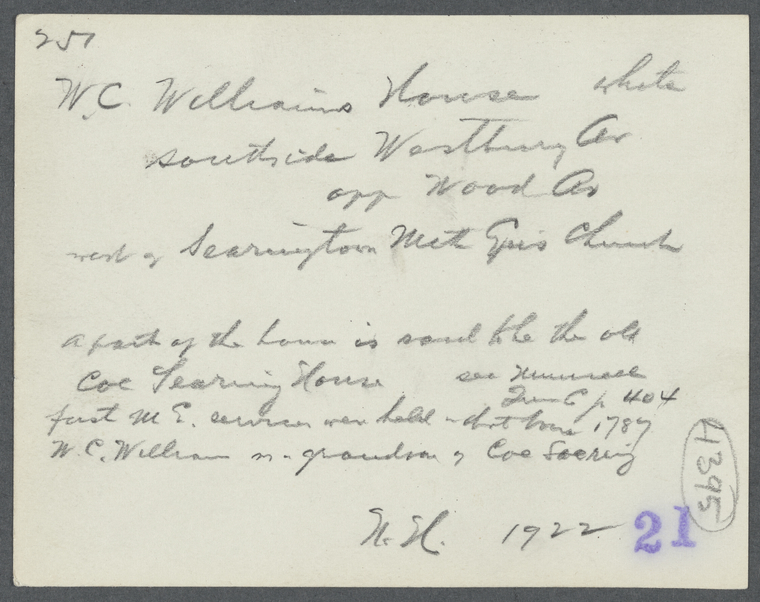 251
W.C. Williams House white
southside Westbury Av
opp Wood Av
west of Searingtown Meth Epis Church
a part of the house is said to be the old
Coe Searing House see Munsell
p 404
first M E. services were held in that house 1787
W.C. William is a grandson of Coe Searing
4395
N.H. 1922
21